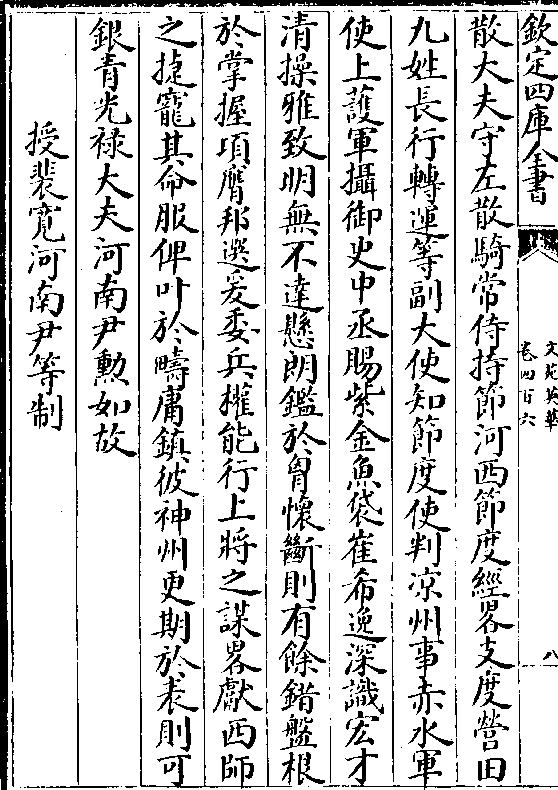 欽定四庫全書
文苑英華
卷四百六
八
散大夫守左散騎常侍持節河西節度經畧支度營田
九姓長行轉運等副大使知節度使判凉州事赤水軍
使上護軍攝御史中丞賜紫金魚袋崔希逸深識宏才
清操雅致明無不達懸朗鑑於胷懷斷則有餘錯盤根
於掌握項膺邦選爰委兵權能行上將之謀畧獻西師
之捷寵其命服俾叶於疇庸鎮彼神州更期於表則可
銀青光禄大夫河南尹勲如故
授裴寛河南尹等制